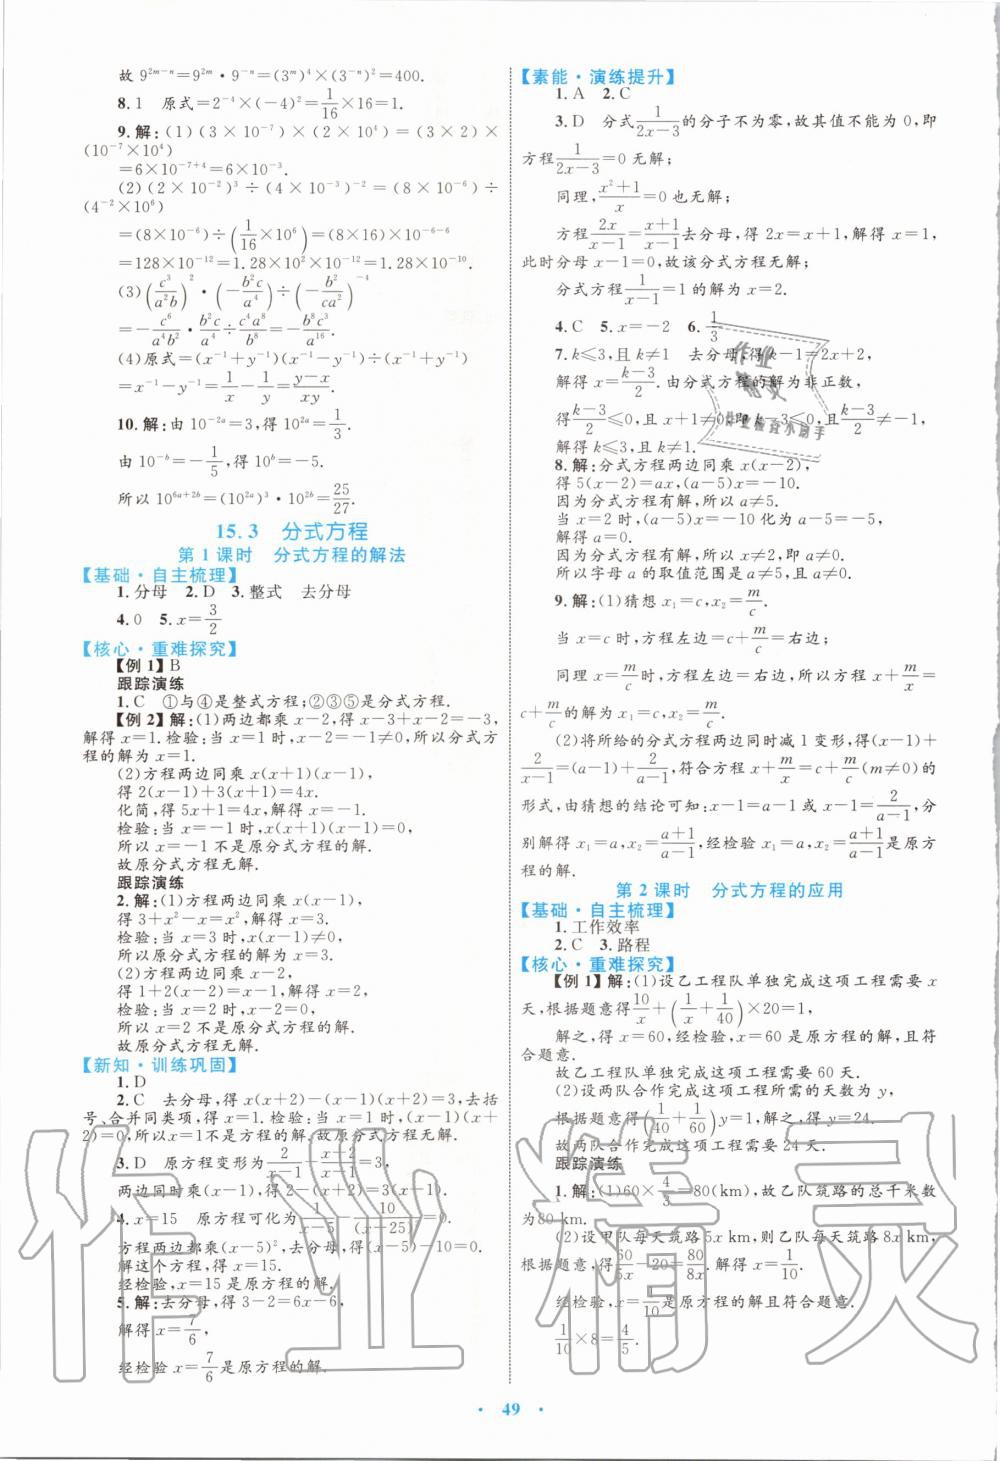 故 9^{2m-n}=9^{2m}·9^{-n}=(3^m)^4×(3^{-n})^2=400.
8.1 原式=2^{-4}×(-4)^2=\frac{1}{16}×16=1.
9.解:(1)(3×10^{-7})×(2×10^4)=(3×2)×
(10^{-7}×10^4)
=6×10^{-7+4}=6×10^{-3}.
(2)(2×10^{-2})^3÷(4×10^{-3})^{-2}=(8×10^{-6})÷
(4^{-2}×10^6)
=(8×10^{-6})÷(\frac{1}{16}×10^6)=(8×16)×10^{-6-6}
=128×10^{-12}=1.28×10^2×10^{-12}=1.28×10^{-10}.
(3)(\frac{c^3}{a^2b})^2·(-\frac{b^2c}{a^4})÷(-\frac{b^2}{ca^2})^{-4}
=-\frac{c^6}{a^4b^2}·\frac{b^2c}{a^4}÷\frac{c^4a^8}{b^8}=-\frac{b^8c^3}{a^{16}}.
(4)原式=(x^{-1}+y^{-1})(x^{-1}-y^{-1})÷(x^{-1}+y^{-1})
=x^{-1}-y^{-1}=\frac{1}{x}-\frac{1}{y}=\frac{y-x}{xy}.
10.解:由 10^{-2a}=3,得 10^{2a}=\frac{1}{3}.
由 10^{-b}=-\frac{1}{5},得 10^b=-5.
所以 10^{6a+2b}=(10^{2a})^3·10^{2b}=\frac{25}{27}.
15.3 分式方程
第1课时 分式方程的解法
【基础·自主梳理】
1.分母 2.D 3.整式 去分母
4.0 5.x=\frac{3}{2}
【核心·重难探究】
【例1】B
跟踪演练
1.C ①与④是整式方程;②③⑤是分式方程.
【例2】解:(1)两边都乘 x-2,得 x-3+x-2=-3,
解得 x=1.检验:当 x=1 时,x-2=-1≠0,故分式方
程的解为 x=1.
(2)方程两边同乘 x(x+1)(x-1),
得 2(x-1)+3(x+1)=4x.
化简,得 5x+1=4x,解得 x=-1.
检验:当 x=-1 时,x(x+1)(x-1)=0,
所以 x=-1 不是原分式方程的解.
故原分式方程无解.
跟踪演练
2.解:(1)方程两边同乘 x(x-1),
得 3+x^2-x=x^2,解得 x=3.
检验:当 x=3 时,x(x-1)≠0,
所以原分式方程的解为 x=3.
(2)方程两边同乘 x-2,
得 1+2(x-2)=x-1,解得 x=2.
检验:当 x=2 时,x-2=0,
所以 x=2 不是原分式方程的解.
故原分式方程无解.
【新知·训练巩固】
1.D
2.C 去分母,得 x(x+2)-(x-1)(x+2)=3,去括
号、合并同类项,得 x=1.检验:当 x=1 时,(x-1)(x+
2)=0,所以 x=1 不是方程的解.故原分式方程无解.
3.D 原方程变形为\frac{2}{x-1}-\frac{x+2}{x-1}=3,
两边同时乘(x-1),得 2-(x+2)=3(x-1).
4.x=15 原方程可化为\frac{1}{x-5}-\frac{10}{(x-5)^2}=0,
方程两边都乘(x-5)^2,去分母,得(x-5)-10=0.
解这个方程,得 x=15.
经检验,x=15 是原方程的解.
5.解:去分母,得 3-2=6x-6,
解得 x=\frac{7}{6},
经检验 x=\frac{7}{6}是原方程的解.
【素能·演练提升】
1.A 2.C
3.D 分式\frac{1}{2x-3}的分子不为零,故其值不能为 0,即
方程\frac{1}{2x-3}=0 无解;
同理,\frac{x^2+1}{x}=0 也无解;
方程\frac{2x}{x-1}=\frac{x+1}{x-1}去分母,得 2x=x+1,解得 x=1,
此时分母 x-1=0,故该分式方程无解;
分式方程\frac{1}{x-1}=1 的解为 x=2.
4.C 5.x=-2 6.\frac{1}{3}
7.k≤3,且 k≠1 去分母,得 k-1=2x+2,
解得 x=\frac{k-3}{2}.由分式方程的解为非正数,
得\frac{k-3}{2}≤0,且 x+1≠0,即 k-3≤0,且\frac{k-3}{2}≠-1,
解得 k≤3,且 k≠1.
8.解:分式方程两边同乘 x(x-2),
得 5(x-2)=ax,(a-5)x=-10.
因为分式方程有解,所以 a≠5.
当 x=2 时,(a-5)x=-10 化为 a-5=-5,
解得 a=0.
因为分式方程有解,所以 x≠2,即 a≠0.
所以字母 a 的取值范围是 a≠5,a≠0.
9.解:(1)猜想 x_1=c,x_2=\frac{m}{c}.
当 x=c 时,方程左边=c+\frac{m}{c}=右边;
同理 x=\frac{m}{c}时,方程左边=右边,所以方程 x+\frac{m}{x}=
c+\frac{m}{c}的解为 x_1=c,x_2=\frac{m}{c}.
(2)将所给的分式方程两边同时减 1 变形,得(x-1)+
\frac{2}{x-1}=(a-1)+\frac{2}{a-1},符合方程 x+\frac{m}{x}=c+\frac{m}{c}(m≠0)的
形式,由猜想的结论可知:x-1=a-1 或 x-1=\frac{2}{a-1},分
别解得 x_1=a,x_2=\frac{a+1}{a-1},经检验 x_1=a,x_2=\frac{a+1}{a-1}是原方
程的解.
第2课时 分式方程的应用
【基础·自主梳理】
1.工作效率
2.C 3.路程
【核心·重难探究】
【例1】解:(1)设乙工程队单独完成这项工程需要 x
天,根据题意得\frac{10}{x}+(\frac{1}{x}+\frac{1}{40})×20=1,
解之,得 x=60,经检验,x=60 是原方程的解,且符
合题意.
故乙工程队单独完成这项工程需要 60 天.
(2)设两队合作完成这项工程所需的天数为 y,
根据题意得(\frac{1}{40}+\frac{1}{60})y=1,解之,得 y=24.
故两队合作完成这项工程需要 24 天.
跟踪演练
1.解:(1)60×\frac{4}{3}=80(km),故乙队筑路的总千米数
为 80 km.
(2)设甲队每天筑路 5x km,则乙队每天筑路 8x km,
根据题意,得\frac{60}{5x}-20=\frac{80}{8x}.解得 x=\frac{1}{10}.
经检验,x=\frac{1}{10}是原方程的解且符合题意.
\frac{1}{10}×8=\frac{4}{5}.
·49·
作业精灵
作业
精灵
作业检查小助手